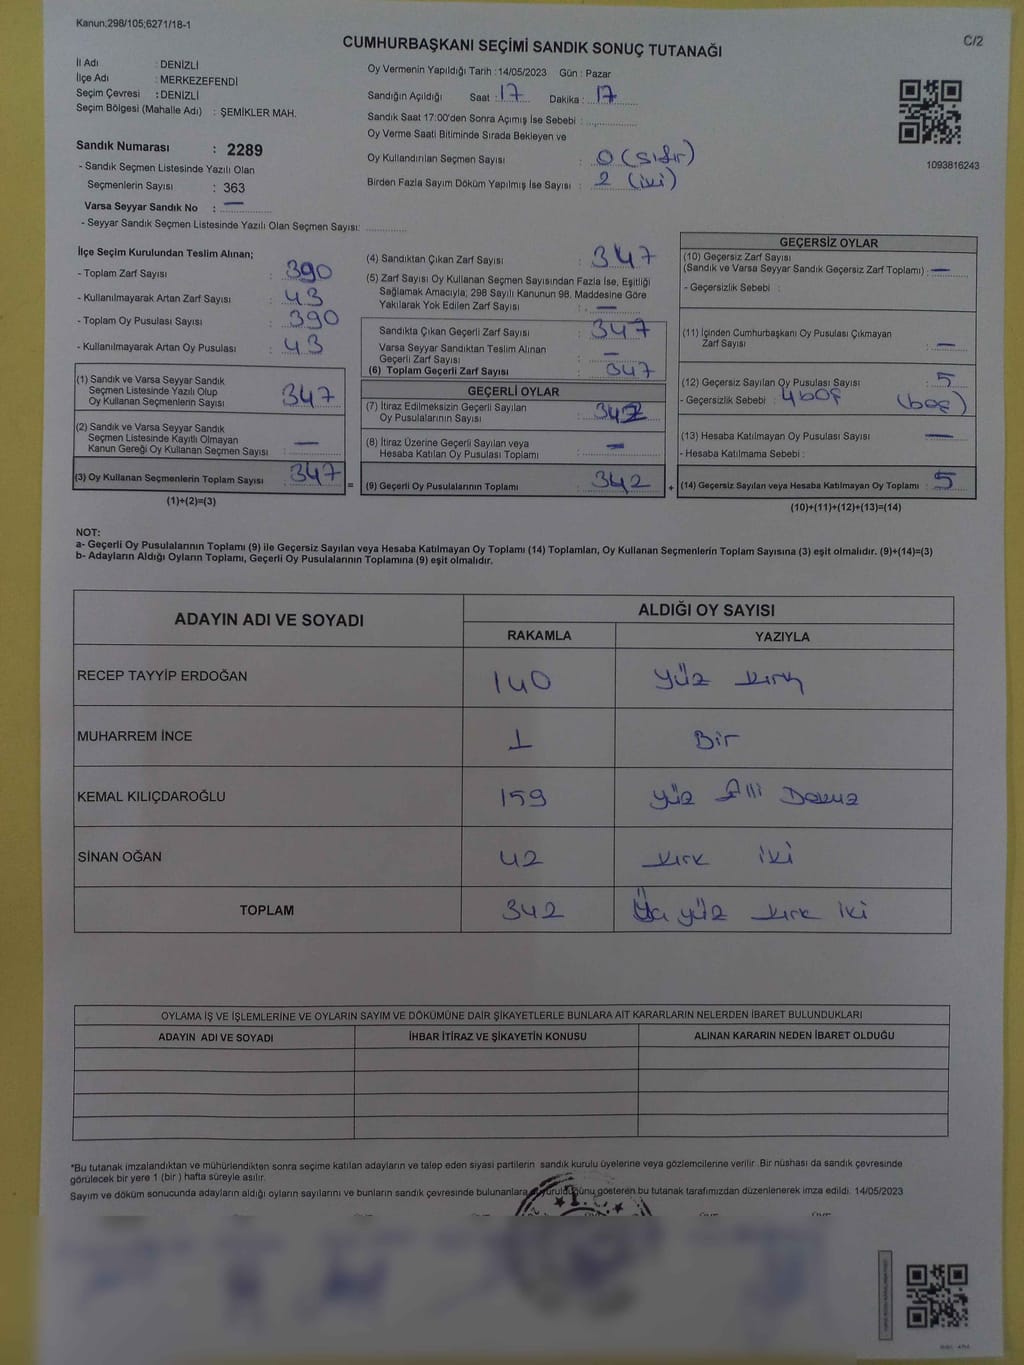 Kanun;298/105;6271/18-1
C/2
CUMHURBAŞKANI SEÇİMİ SANDIK SONUÇ TUTANAĞI
İl Adı : DENİZLİ
İlçe Adı : MERKEZEFENDİ
Seçim Çevresi : DENİZLİ
Seçim Bölgesi (Mahalle Adı) : ŞEMİKLER MAH.
Sandık Numarası : 2289
- Sandık Seçmen Listesinde Yazılı Olan
Seçmenlerin Sayısı : 363
Varsa Seyyar Sandık No : —
- Seyyar Sandık Seçmen Listesinde Yazılı Olan Seçmen Sayısı: ............
Oy Vermenin Yapıldığı Tarih : 14/05/2023 Gün : Pazar
Sandığın Açıldığı Saat : 17 Dakika : 17
Sandık Saat 17:00'den Sonra Açımış İse Sebebi : ............
Oy Verme Saati Bitiminde Sırada Bekleyen ve
Oy Kullandırılan Seçmen Sayısı : 0 (sıfır)
Birden Fazla Sayım Döküm Yapılmış İse Sayısı : 2 (iki)
1093816243
İlçe Seçim Kurulundan Teslim Alınan;
- Toplam Zarf Sayısı : 390
- Kullanılmayarak Artan Zarf Sayısı : 43
- Toplam Oy Pusulası Sayısı : 390
- Kullanılmayarak Artan Oy Pusulası : 43
(1) Sandık ve Varsa Seyyar Sandık
Seçmen Listesinde Yazılı Olup
Oy Kullanan Seçmenlerin Sayısı : 347
(2) Sandık ve Varsa Seyyar Sandık
Seçmen Listesinde Kayıtlı Olmayan
Kanun Gereği Oy Kullanan Seçmen Sayısı : —
(3) Oy Kullanan Seçmenlerin Toplam Sayısı : 347
(1)+(2)=(3)
=
(4) Sandıktan Çıkan Zarf Sayısı : 347
(5) Zarf Sayısı Oy Kullanan Seçmen Sayısından Fazla İse, Eşitliği
Sağlamak Amacıyla; 298 Sayılı Kanunun 98. Maddesine Göre
Yakılarak Yok Edilen Zarf Sayısı : —
Sandıkta Çıkan Geçerli Zarf Sayısı : 347
Varsa Seyyar Sandıktan Teslim Alınan
Geçerli Zarf Sayısı : —
(6) Toplam Geçerli Zarf Sayısı : 347
GEÇERLİ OYLAR
(7) İtiraz Edilmeksizin Geçerli Sayılan
Oy Pusulalarının Sayısı : 342
(8) İtiraz Üzerine Geçerli Sayılan veya
Hesaba Katılan Oy Pusulası Toplamı : —
(9) Geçerli Oy Pusulalarının Toplamı : 342
+
GEÇERSİZ OYLAR
(10) Geçersiz Zarf Sayısı
(Sandık ve Varsa Seyyar Sandık Geçersiz Zarf Toplamı) : —
- Geçersizlik Sebebi :
(11) İçinden Cumhurbaşkanı Oy Pusulası Çıkmayan
Zarf Sayısı : —
(12) Geçersiz Sayılan Oy Pusulası Sayısı : 5
- Geçersizlik Sebebi : 4 boş (boş)
(13) Hesaba Katılmayan Oy Pusulası Sayısı : —
- Hesaba Katılmama Sebebi :
(14) Geçersiz Sayılan veya Hesaba Katılmayan Oy Toplamı : 5
(10)+(11)+(12)+(13)=(14)
NOT:
a- Geçerli Oy Pusulalarının Toplamı (9) ile Geçersiz Sayılan veya Hesaba Katılmayan Oy Toplamı (14) Toplamları, Oy Kullanan Seçmenlerin Toplam Sayısına (3) eşit olmalıdır. (9)+(14)=(3)
b- Adayların Aldığı Oyların Toplamı, Geçerli Oy Pusulalarının Toplamına (9) eşit olmalıdır.
ADAYIN ADI VE SOYADI
ALDIĞI OY SAYISI
RAKAMLA YAZIYLA
RECEP TAYYİP ERDOĞAN 140 yüz kırk
MUHARREM İNCE 1 Bir
KEMAL KILIÇDAROĞLU 159 yüz Elli Dokuz
SİNAN OĞAN 42 kırk iki
TOPLAM 342 Üç yüz kırk iki
OYLAMA İŞ VE İŞLEMLERİNE VE OYLARIN SAYIM VE DÖKÜMÜNE DAİR ŞİKAYETLERLE BUNLARA AİT KARARLARIN NELERDEN İBARET BULUNDUKLARI
ADAYIN ADI VE SOYADI İHBAR İTİRAZ VE ŞİKAYETİN KONUSU ALINAN KARARIN NEDEN İBARET OLDUĞU
*Bu tutanak imzalandıktan ve mühürlendikten sonra seçime katılan adayların ve talep eden siyasi partilerin sandık kurulu üyelerine veya gözlemcilerine verilir. Bir nüshası da sandık çevresinde
görülecek bir yere 1 (bir ) hafta süreyle asılır.
Sayım ve döküm sonucunda adayların aldığı oyların sayılarını ve bunların sandık çevresinde bulunanlara duyurulduğunu gösteren bu tutanak tarafımızdan düzenlenerek imza edildi. 14/05/2023